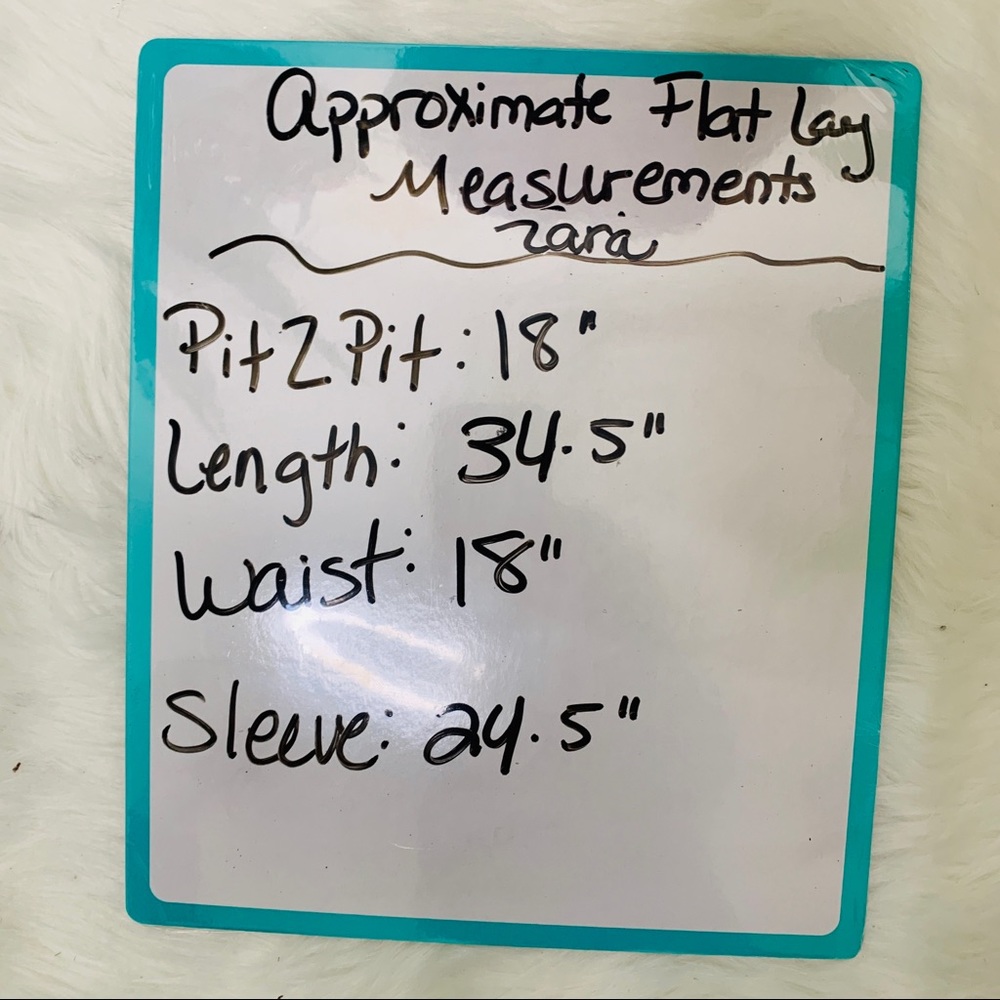 Approximate Flat Lay
Measurements
Zara
Pit 2 Pit: 18"
Length: 34.5"
Waist: 18"
Sleeve: 24.5"